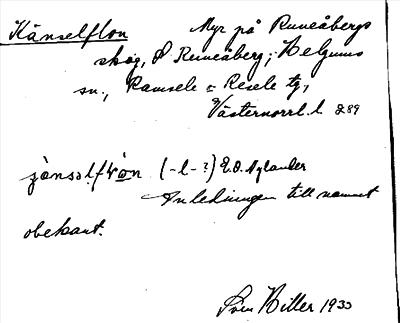 Känselflon Myr på Runeåbergs
skog, S Runeåberg, Helgums
sn., Ramsele o Resele tg,
Västernorrl. l. 289
jànsəlfròn (-l-?) E.O. Nylander
Anledningen till namnet
obekant.
Sven Hiller 1935